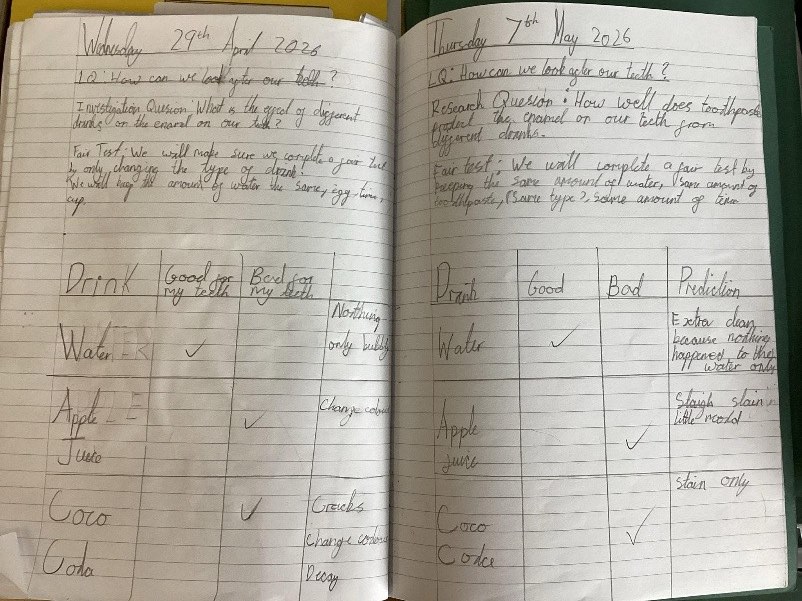 Wednesday 29th April 2026
LQ: How can we look after our teeth?
Investigation Quesion: What is the effect of different
drinks on the enamel on our teeth?
Fair Test: We will make sure we complete a fair test
by only changing the type of drink!
We will keep the amount of water the same, egg, time,
cup.
Drink
Good for
my teeth
Bad for
my teeth
Water
✓
Northing
only bubbly
Apple
Juice
✓
Change colour
Coco
Coda
✓
Cracks
Change colour
Decay
Thursday 7th May 2026
LQ: How can we look after our teeth?
Research Quesion: How well does toothpaste
protect the enamel on our teeth from
different drinks.
Fair test: We will complete a fair test by
keeping the same amount of water, same amount of
toothpaste, (Same type), same amount of time
Drink
Good
Bad
Prediction
Water
✓
Extra clean
because nothing
happened to the
water only
Apple
Juice
✓
stain
little
Coco
✓
Stain only